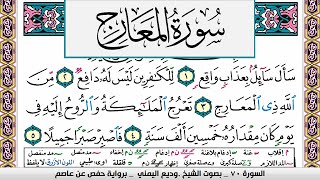 سُورَةُ المَعَارِجِ
سَأَلَ سَآئِلُۢ بِعَذَابٖ وَاقِعٖ ١ لِّلۡكَٰفِرِينَ لَيۡسَ لَهُۥ دَافِعٞ ٢ مِّنَ
ٱللَّهِ ذِي ٱلۡمَعَارِجِ ٣ تَعۡرُجُ ٱلۡمَلَٰٓئِكَةُ وَٱلرُّوحُ إِلَيۡهِ فِي
يَوۡمٖ كَانَ مِقۡدَارُهُۥ خَمۡسِينَ أَلۡفَ سَنَةٖ ٤ فَٱصۡبِرۡ صَبۡرٗا جَمِيلًا ٥
السورة ٧٠ - بصوت الشيخ .وديع اليمني - برواية حفص عن عاصم